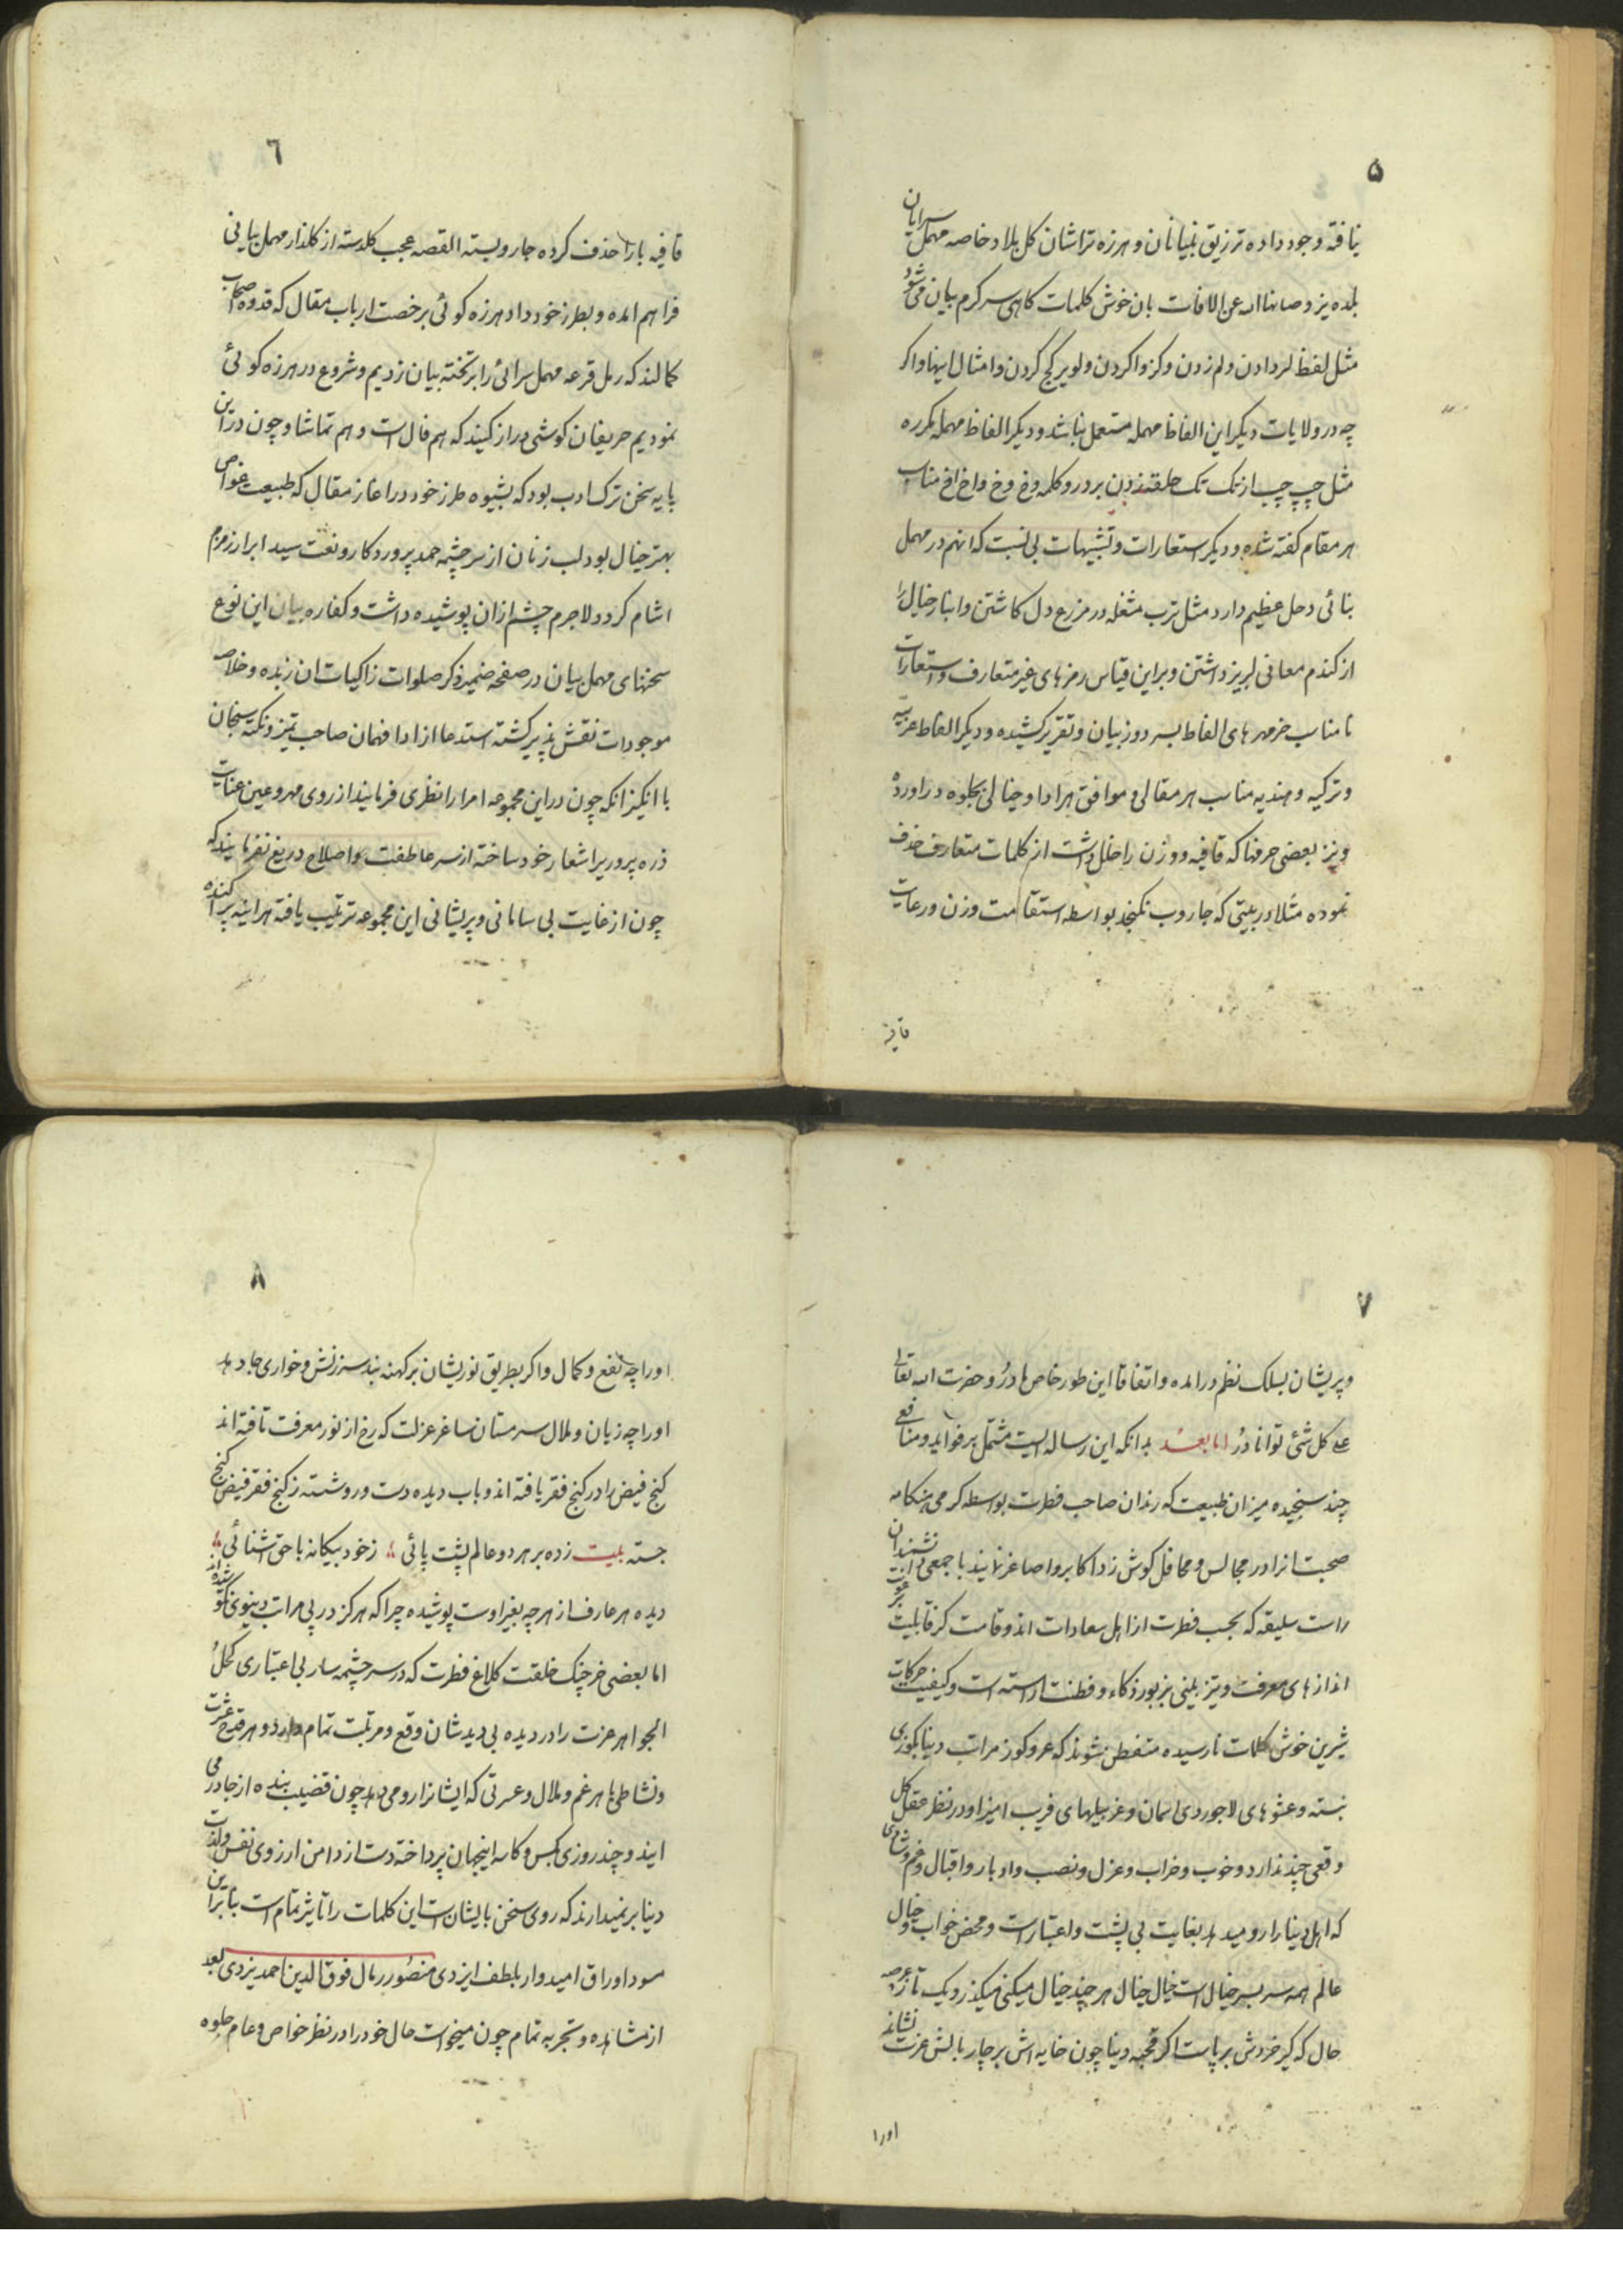 ۵
یافته وجود داده تزریق بلیانان و هرزه تراشان کل بلاد خاصه مهمل سرایان
بلده یزد صانها الله عن الافات بان خوش کلمات کاهی سر کرم بیان می شود
مثل لفظ لر دادن و لم زدن و کز وا کردن و لویر کج کردن و امثال اینها و اکر
چه در ولایات دیکر این الفاظ مهمله مستعمل نباشد و دیکر الفاظ مهمله مکرره
مثل چپ چپ از تک تک حلقه زدن بر در و کلمه وخ وخ و اخ اخ مناسب
هر مقام کفته شده و دیکر استعارات و تشبیهات بی نسبت که انهم در مهمل
بنائی دخل عظیم دارد مثل ترب مثغله در مزرع دل کاشتن و انبار خیال را
از کندم معانی لبریز داشتن و براین قیاس رمزهای غیر متعارف و استعارات
نامناسب خرمهرهای الفاظ بسر دوز بیان و تقریر کشیده و دیکر الفاظ عربیه
و ترکیه و هندیه مناسب هر مقالی و موافق هر ادا و خیالی بجلوه در اورده
و نیز بعضی حرفها که قافیه و وزن را خلل داشت از کلمات متعارف حذف
نموده مثلا در بیتی که جاروب نکنجد بواسطه استقامت وزن و رعایت
قافیه
٦
قافیه با را حذف کرده جارو بسته القصه عجب کلدسته از کلذار مهمل بیانی
فراهم امده و بطرز خود داد هرزه کوئی برخصت ارباب مقال که قدوه اصحاب
کمالند که رمل قرعه مهمل سرائی را بر تخته بیان زدیم و شروع در هرزه کوئی
نمودیم حریفان کوشی دراز کنید که هم فال است و هم تماشا و چون در این
پایه سخن ترک ادب بود که بشیوه طرز خود در اغاز مقال که طبیعت غواص
بهتر خیال بود لب زنان از سر چشمه حمد پروردکار و نعت سید ابرار زمزم
اشام کردد لاجرم چشم ازان پوشیده داشت و کفاره بیان این نوع
سخنهای مهمل بیان در صفحه ضمیر ذکر صلوات زاکیات ان زبده و خلاصه
موجودات نقش پذیر کشته استدعا از ادا فهمان صاحب تمیز و نکته سنجان
با انکیز انکه چون دراین مجموعه امرار نظری فرمایند از روی مهر و عین عنایت
ذره پروریرا شعار خود ساخته از سر عاطفت و اصلاح دریغ نفرمایند که
چون از غایت بی سامانی و پریشانی این مجموعه ترتیب یافته هراینه پراکنده
۷
و پریشان بسلک نظم در امده و اتفاقا این طور خاص نادر رو حضرت الله تعالی
علی کل شئ توانا در اما بعد بدانکه این رساله ایست مشتمل بر فواید و منافعی
چند سنجیده میزان طبیعت که رندان صاحب فطرت بواسطه کرمی هنکامه
صحبت انرا در مجالس و محافل کوش زد اکابر و اصاغر نمایند با جمعی دانشمندان
راست سلیقه که بحسب فطرت از اهل سعادات اند و قامت کز قابلیت
اندازهای معرفت و تیز بینی بزیور ذکاء و فطنت اراسته است و کیفیت حرکات
شیرین خوش کلمات نارسیده متفطن نشوند که عر و کوز مراتب دنیا بکوزی
نبسته و عشوهای لاجوردی اسمان و غربیلهای فریب امیز او در نظر عقل کل
وقعی چند ندارد و خوب و خراب و عزل و نصب و ادبار و اقبال و غم و شادی
که اهل دنیا را رو میدهد بغایت بی پشت و اعتبار است و محض خواب و خیال
عالم همه سر بسر خیالست خیال خیال هر چند خیال میکنی میکذرد یک تازه عرصه
حال که کیر خردش بر پاست اکر قحبه دنیا چون خایه اش بر چار بالش عزت نشاند
اورا
۸
اورا چه نفع و کمال و اکر بطریق نوریشان بر کهنه بند سرزنش و خواری جا دهد
اورا چه زیان و ملال سرمستان ساغر عزلت که رخ از نور معرفت تافته اند
کنج فیض را در کنج فقر یافته اند و باب دیده دست و رو شسته ز کنج فقر فیض کنج
جسته بیت زده بر هر دو عالم پشت پائی ؛ ز خود بیکانه با حق اشنائی ؛
دیده هر عارف از هر چه بغیر اوست پوشیده چرا که هرکز در پی مراتب دنیوی نکو شده اند
اما بعضی خرچنک خلقت کلاغ فطرت که در سر چشمه سار بی اعتباری کحل
الجواهر عزت را در دیده بی دیدشان وقع و مرتبت تمام دارد و هر قدح عشرت
و نشاطی با هر غم و ملال و عسرتی که ایشانرا رو میدهد چون قضیب بنده از جا در می
ایند و چند روزی بکس و کاسه اینجهان پرداخته دست از دامن ارزوی نفس و لذت
دنیا بر نمیدارند که روی سخن بایشان است این کلمات را تاثیر تمام است بنابراین
مسود اوراق امیدوار بلطف ایزدی منصور رمال فوق الدین احمد یزدی بعد
از مشاهده و تجربه تمام چون میخواست حال خود را در نظر خواص و عام جلوه